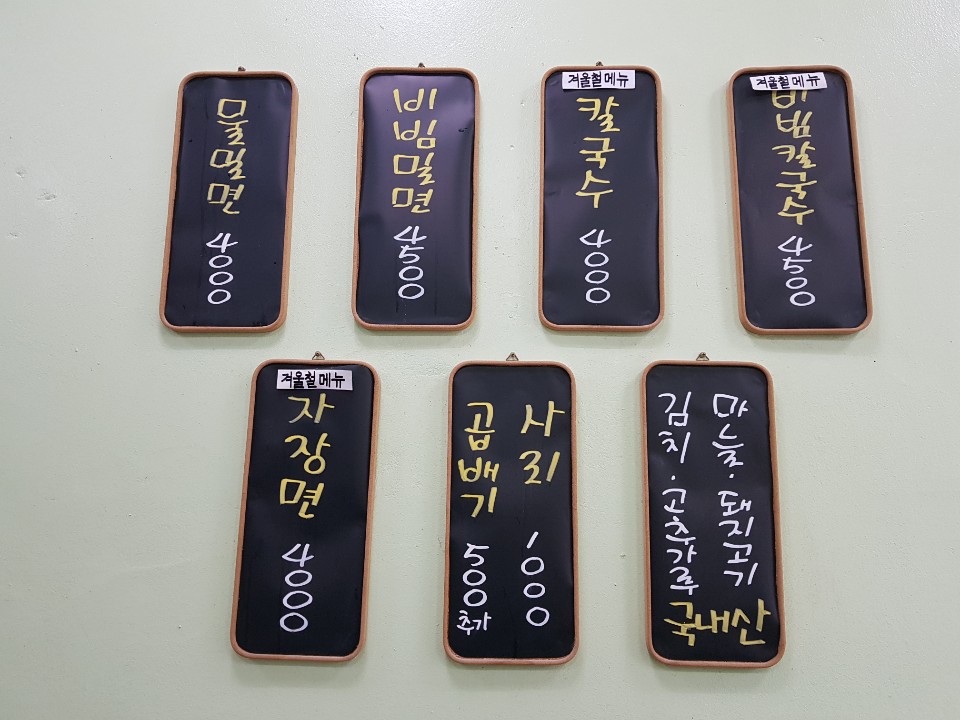 물밀면
4000
비빔밀면
4500
겨울철메뉴
칼국수
4000
겨울철메뉴
비빔칼국수
4500
겨울철메뉴
자장면
4000
곱빼기
500
추가
사리
1000
김치·고추가루
마늘·돼지고기
국내산